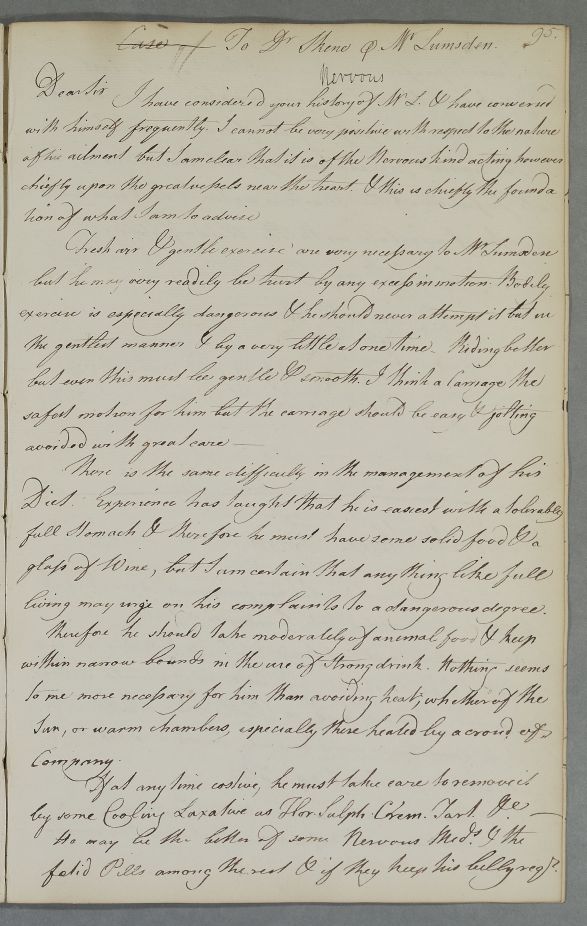 95.
Case of To Dr Skene @ Mr Lumsden.
Nervous
Dear Sir I have considered your history of Mr L. & have conversed
with himself frequently. I cannot be very positive with respect to the nature
of his ailment but I am clear that it is of the Nervous kind acting however
chiefly upon the great vessels near the heart. & this is chiefly the founda
tion of what I am to advise
Fresh air & gentle exercise are very necessary to Mr Lumsden
but he may very readily be hurt by any excess in motion. Bodily
exercise is especially dangerous & he should never attempt it but in
the gentlest manner & by a very little at one time. Riding better
but even this must be gentle & smooth. I think a Carriage the
safest motion for him but the carriage should be easy & jolting
avoided with great care —
There is the same difficulty in the management of his
Diet. Experience has taught that he is easiest with a tolerably
full stomach & therefore he must have some solid food & a
glass of Wine, but I am certain that any thing like full
living may urge on his complaints to a dangerous degree.
Therefore he should take moderately of animal food & keep
within narrow bounds in the use of Strong drink. Nothing seems
to me more necessary for him than avoiding heat, whether of the
Sun, or warm chambers, especially these heated by a croud of
Company.
If at any time costive, he must take care to remove it
by some Cooling Laxative as Flor Sulph. Crem. Tart. &c —
He may be the better of some Nervous Meds. & the
fetid Pills among the rest & if they keep his belly regr.